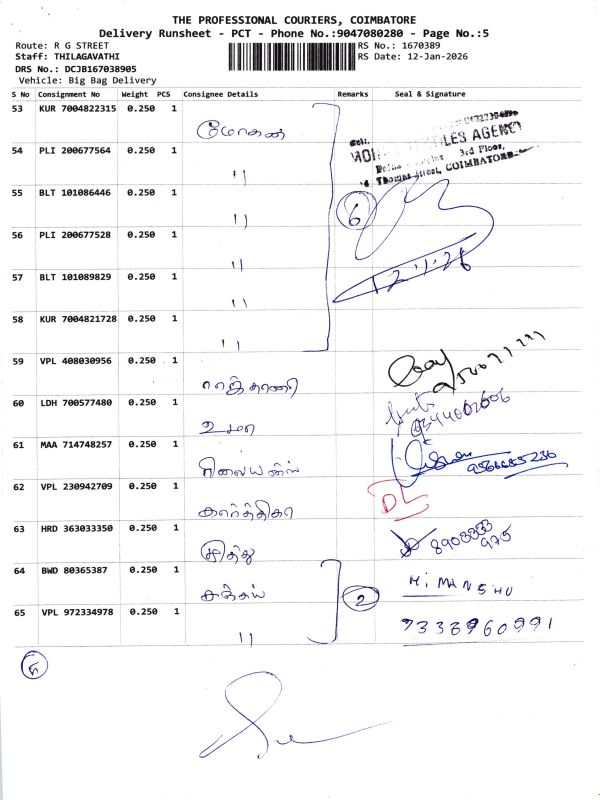 THE PROFESSIONAL COURIERS, COIMBATORE
Delivery Runsheet - PCT - Phone No.:9047080280 - Page No.:5
Route: R G STREET
Staff: THILAGAVATHI
DRS No.: DCJB167038905
Vehicle: Big Bag Delivery
RS No.: 1670389
RS Date: 12-Jan-2026
S No Consignment No Weight PCS Consignee Details Remarks Seal & Signature
53 KUR 7004822315 0.250 1 மோகன்
54 PLI 200677564 0.250 1 "
TILES AGENCY
3rd Floor,
Thomas Street, COIMBATORE
55 BLT 101086446 0.250 1 " 6
56 PLI 200677528 0.250 1 "
12/1/26
57 BLT 101089829 0.250 1 "
58 KUR 7004821728 0.250 1 "
59 VPL 408030956 0.250 1 ராஜ்காணி
60 LDH 700577480 0.250 1 உமா
61 MAA 714748257 0.250 1 ரிலையன்ஸ்
62 VPL 230942709 0.250 1 கார்த்திகா DL
63 HRD 363033350 0.250 1 ஜித்து 8903333
975
64 BWD 80365387 0.250 1 சஞ்சய் 2 HIMANSHU
65 VPL 972334978 0.250 1 " 7338960991